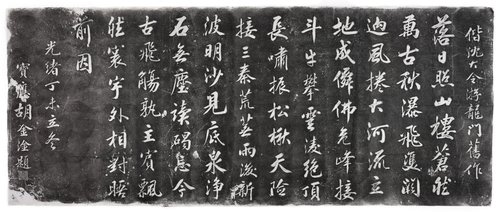 偕沈大令游龍門舊作
落日照山樓蒼然
萬古秋瀑飛雙闕
迴風捲大河流立
地成僊佛危峰接
斗牛攀雲凌絕頂
長嘯振松楸天險
接三秦荒菴雨後新
波明沙見底泉淨
石無塵讀碣悲今
古飛觴孰主賓飄
然寰宇外相對晤
前因
光緒丁未立冬
寶應胡金淦題